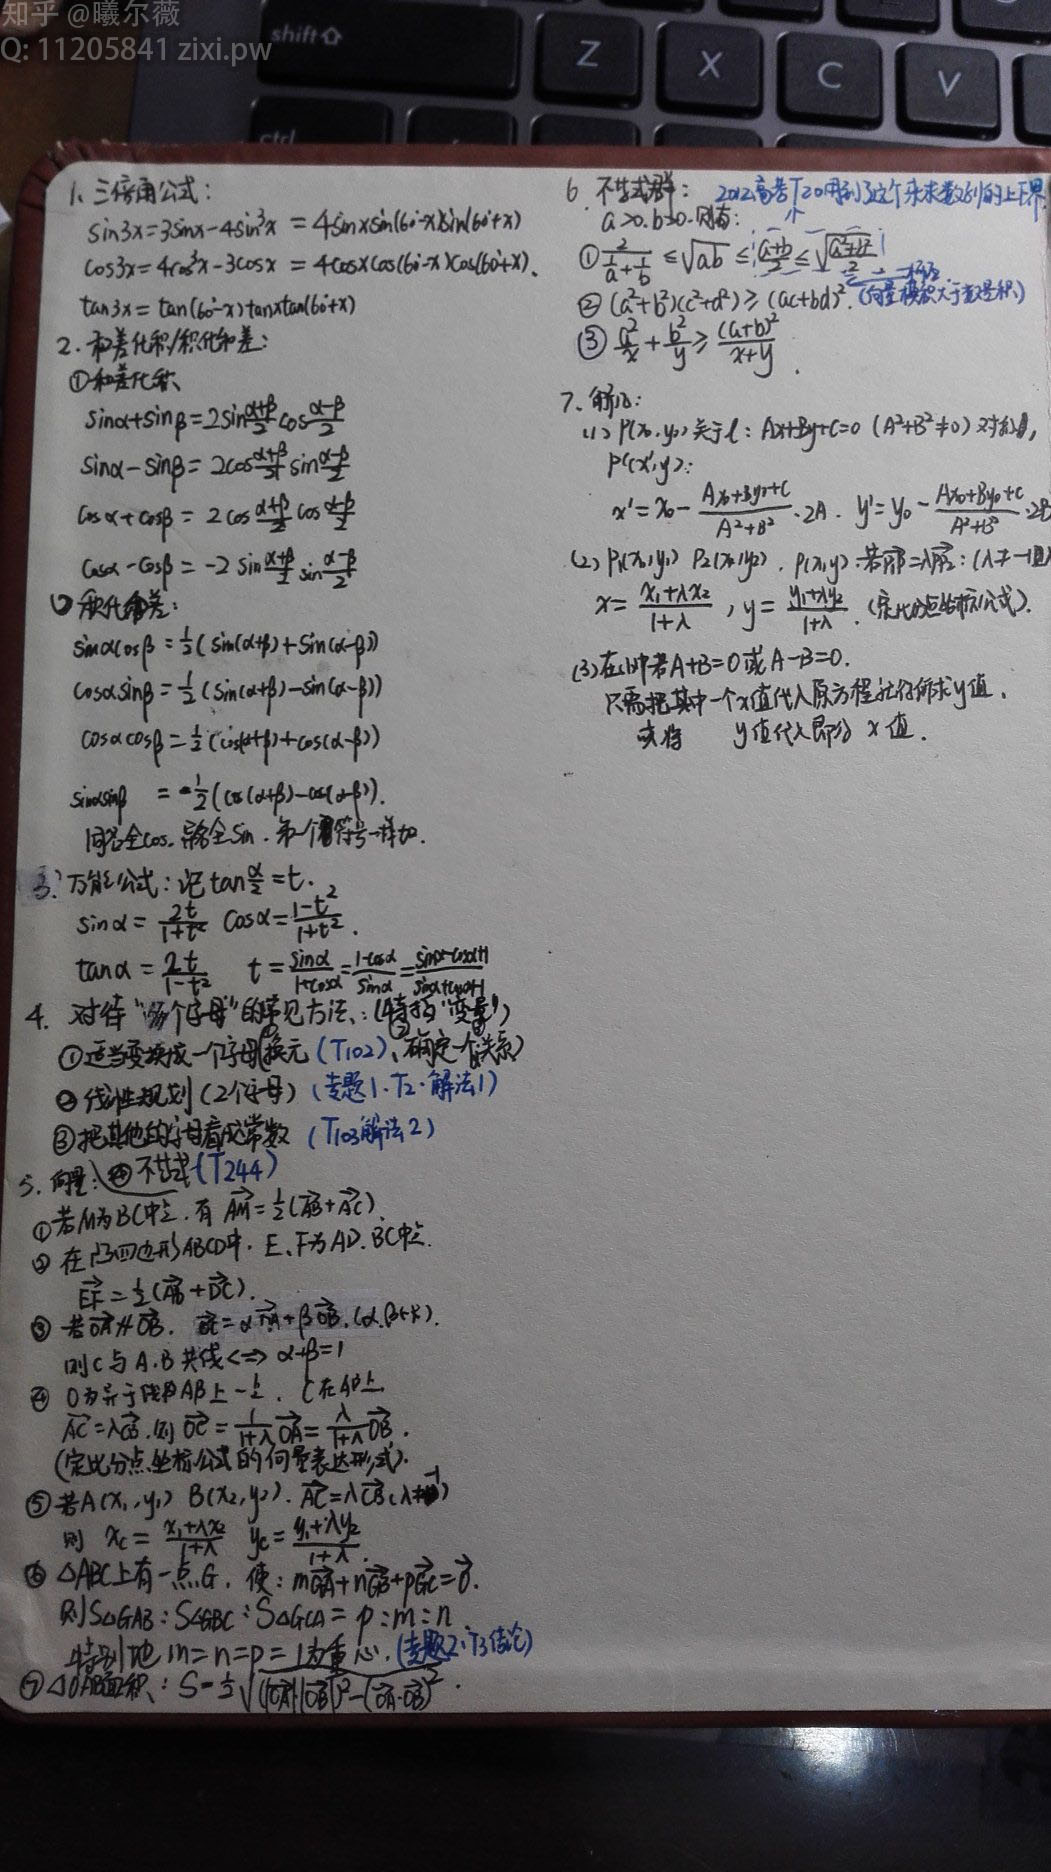 知乎 @曦尔薇
Q: 11205841 zixi.pw
shift⇧
Z
X
C
V
ctrl
1、三倍角公式：
sin3x=3sinx-4sin³x = 4sinxsin(60°-x)sin(60°+x)
cos3x=4cos³x-3cosx = 4cosxcos(60°-x)cos(60°+x).
tan3x= tan(60°-x)tanxtan(60°+x)
2. 和差化积/积化和差：
①和差化积、
sinα+sinβ=2sin(α+β)/2 cos(α-β)/2
sinα-sinβ= 2cos(α+β)/2 sin(α-β)/2
cosα+cosβ= 2cos(α+β)/2 cos(α-β)/2
cosα-cosβ= -2 sin(α+β)/2 sin(α-β)/2
积化和差：
sinαcosβ=½(sin(α+β)+sin(α-β))
cosαsinβ=½(sin(α+β)-sin(α-β))
cosαcosβ=½(cos(α+β)+cos(α-β))
sinαsinβ = -½(cos(α+β)-cos(α-β)).
同名全cos.异名全sin.
3. 万能公式：记tan α/2=t.
sinα= 2t/(1+t²) cosα=(1-t²)/(1+t²).
tanα= 2t/(1-t²) t=sinα/(1+cosα)=(1-cosα)/sinα=(sinα-cosα+1)/(sinα+cosα+1)
4. 对待“多个字母”的常见方法：
①适当变换成一个字母(换元(T102)、确定一个关系)
②线性规划(2个字母)(专题1·T2·解法1)
③把其他的字母看成常数 (T103解法2)
④不等式(T244)
5. 向量：
①若M为BC中点.有 AM→=½(AB→+AC→).
② 在凸四边形ABCD中. E、F为AD.BC中点.
EF→=½(AB→+DC→).
③ 若OA→∦OB→. OC→=αOA→+βOB→.(α.β∈R).
则C与A.B共线<=> α+β=1
④ O为异于线段AB上一点. C在AB上.
AC→=λCB→.则 OC→= 1/(1+λ) OA→= λ/(1+λ) OB→.
(定比分点坐标公式的向量表达形式).
⑤若A(x₁,y₁) B(x₂,y₂). AC→=λCB→(λ≠-1)
则 xc= (x₁+λx₂)/(1+λ) yc= (y₁+λy₂)/(1+λ).
⑥ △ABC上有一点G. 使：mGA→+nGB→+pGC→=0→.
则S△GAB:S△GBC:S△GCA= p:m:n
特别地 m=n=p=1为重心.(专题2·T3结论)
⑦△OAB面积：S=½√((|OA→|·|OB→|)²-(OA→·OB→)²).
6. 不等式群： 2012高考T20用到了这个来求数列的上下界
a>0.b>0.则有：
① 2/(1/a+1/b) ≤√ab ≤ (a+b)/2 ≤ √((a²+b²)/2)
② (a²+b²)(c²+d²)≥(ac+bd)². (向量模积大于数量积)
③ a²/x + b²/y ≥ (a+b)²/(x+y).
7. 解几：
(1) P(x₀,y₀)关于l: Ax+By+C=0 (A²+B²≠0)对称点，
P'(x',y'):
x'=x₀- (Ax₀+By₀+C)/(A²+B²)·2A. y'=y₀- (Ax₀+By₀+C)/(A²+B²)·2B
(2) P₁(x₁,y₁) P₂(x₂,y₂). P(x,y).若P₁P→=λPP₂→: (λ≠-1
x= (x₁+λx₂)/(1+λ), y= (y₁+λy₂)/(1+λ).(定比分点坐标公式).
(3)在(1)中若A+B=0或A-B=0.
只需把其中一个x值代入原方程就得所求y值.
或将 y值代入即为 x值.